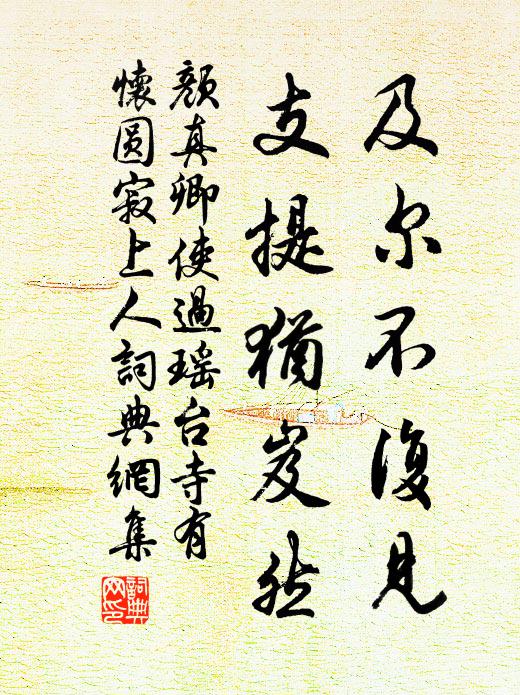 及尔不復見
支提猶岌然
颜真卿使過瑶台寺有
懷圆寂上人詞典網集
詞典网印